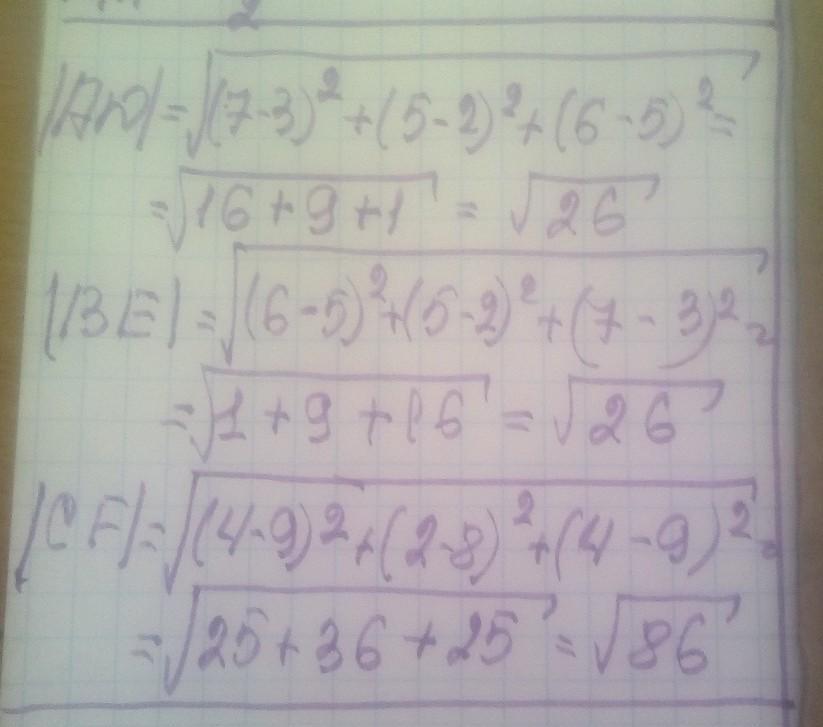 2
|AЮ|=√(7-3)²+(5-2)²+(6-5)²=
=√16+9+1 = √26
|BE|=√(6-5)²+(5-2)²+(7-3)²=
=√1+9+16 = √26
|CF|=√(4-9)²+(2-8)²+(4-9)²=
=√25+36+25 = √86